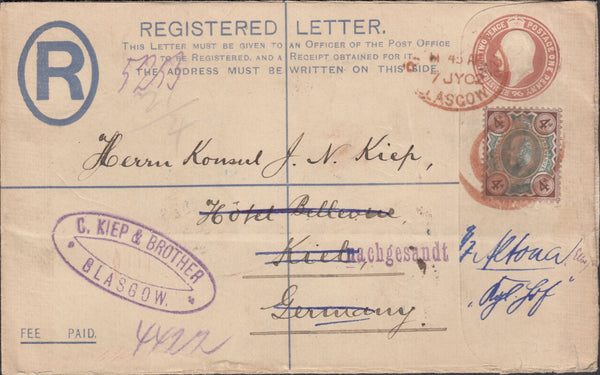 REGISTERED LETTER.
THIS LETTER MUST BE GIVEN TO AN OFFICER OF THE POST OFFICE
TO BE REGISTERED, AND A RECEIPT OBTAINED FOR IT.
THE ADDRESS MUST BE WRITTEN ON THIS SIDE.
R
GLASGOW
Herrn Konsul J. N. Kiep,
Hôtel Bellevue,
Kiel,
nachgesandt
Altona
Germany.
C. KIEP & BROTHER
GLASGOW.
FEE PAID.
4422